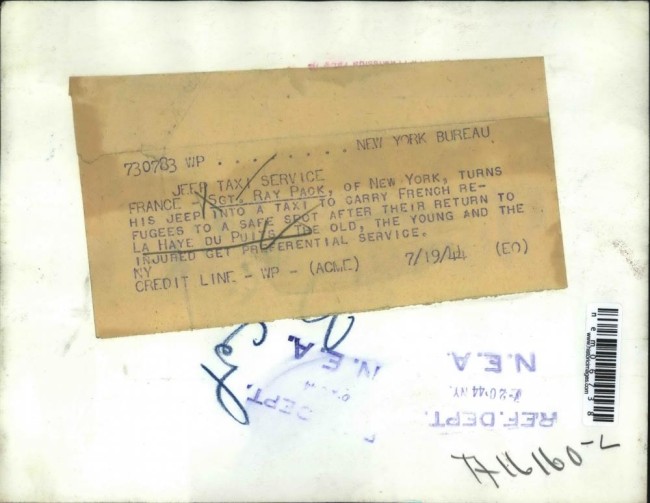 730783 WP . . . . . . . . . NEW YORK BUREAU
JEEP TAXI SERVICE
FRANCE - SGT. RAY PACK, OF NEW YORK, TURNS
HIS JEEP INTO A TAXI TO CARRY FRENCH RE-
FUGEES TO A SAFE SPOT AFTER THEIR RETURN TO
LA HAYE DU PUITS. THE OLD, THE YOUNG AND THE
INJURED GET PREFERENTIAL SERVICE.
NY
CREDIT LINE - WP - (ACME) 7/19/44 (EO)
N.E.A.
N.E.A.
DEPT.
REF. DEPT.